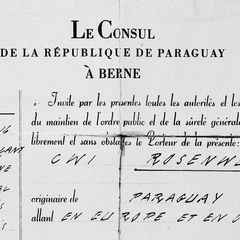 LE CONSUL
DE LA RÉPUBLIQUE DE PARAGUAY
À BERNE
Invite par les présentes toutes les autorités et les
du maintien de l'ordre public et de la sûreté générale
librement et sans obstacles le Porteur de la présente:
CWI ROSENW
originaire de PARAGUAY
allant EN EUROPE ET EN